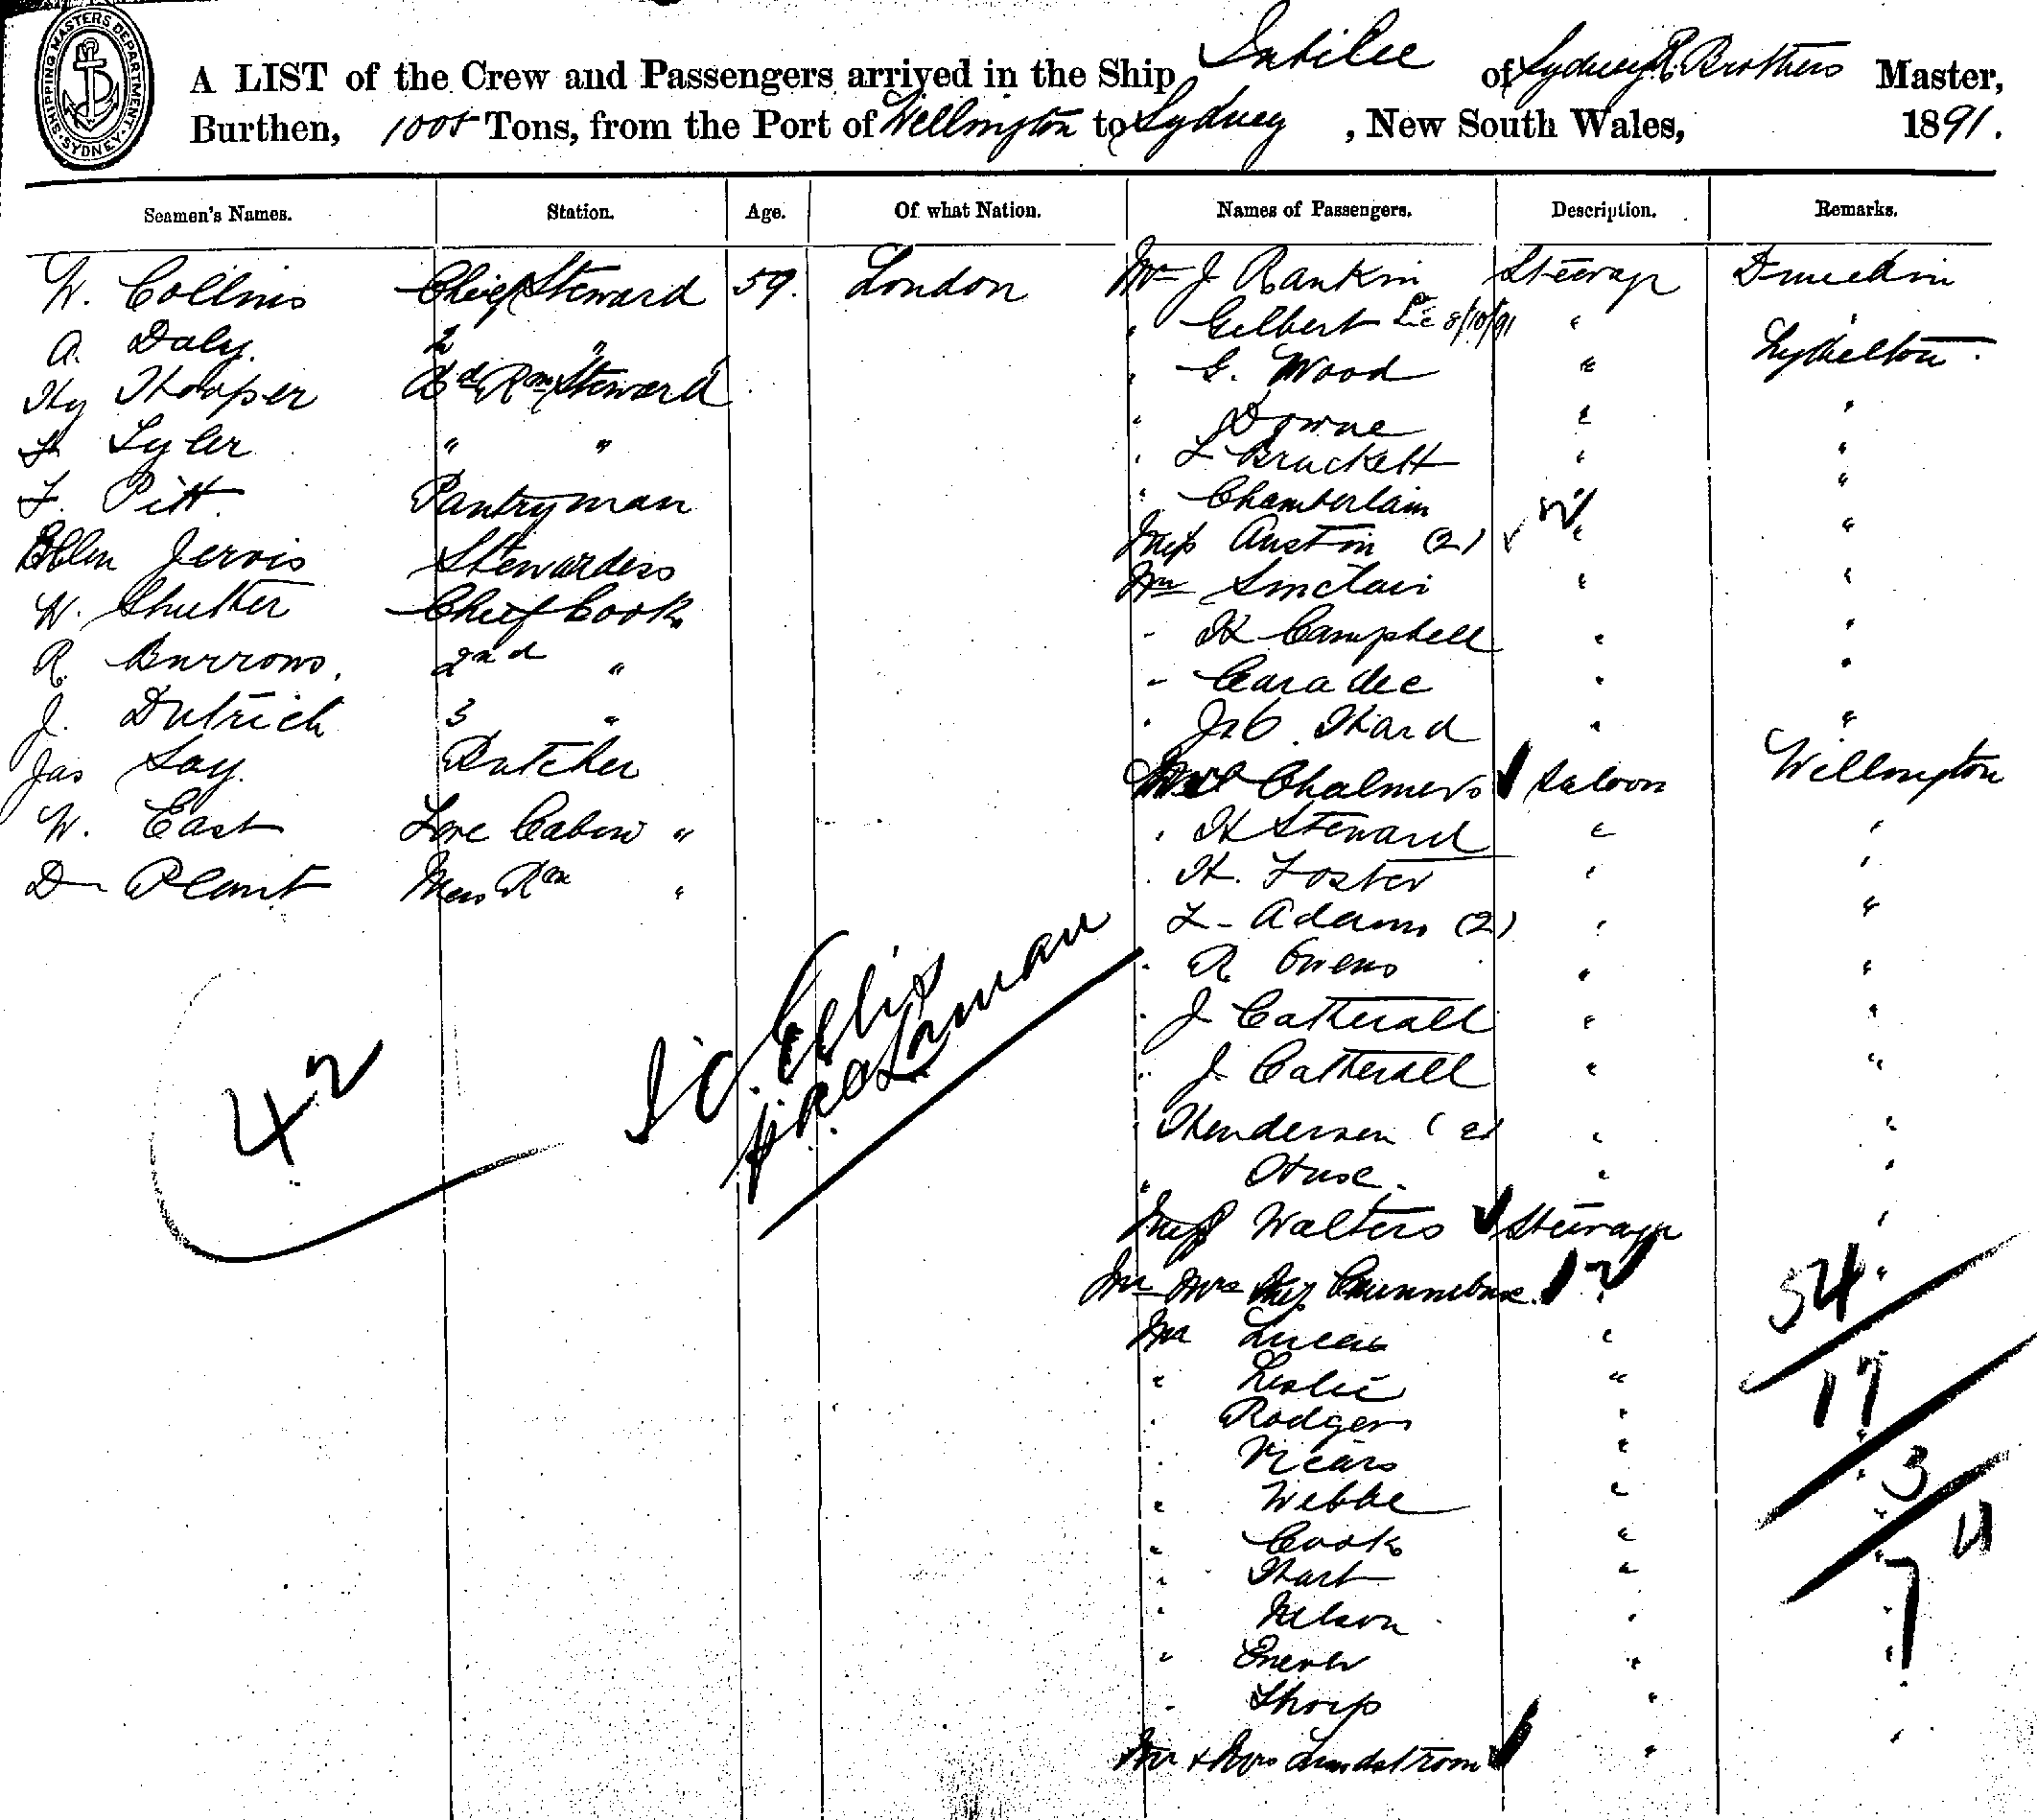 SHIPPING MASTERS DEPARTMENT. SYDNEY.
A LIST of the Crew and Passengers arrived in the Ship Jubilee of Sydney, R. Brothers Master,
Burthen, 1005 Tons, from the Port of Wellington to Sydney, New South Wales, 1891.
Seamen's Names. Station. Age. Of what Nation. Names of Passengers. Description. Remarks.
W. Collins Chief Steward 59. London Mr J Rankin Steerage Dunedin
A. Daly. 2 " " Gilbert 8/10/91 " "
Hy Hooper Steward " G. Wood " Lyttelton
Tyler " " " Downe " "
F. Pitt Pantryman " L Bruckett " "
" Chamberlain " "
Ellen Jervis Stewardess Miss Austin (2) " "
W. Shutter Chief Cook Mr Sinclair " "
R. Burrows. 2nd " " H Campbell " "
J. Dutrich 3 " " "
" Jas Hard " "
Jas Lay. Butcher Chalmers Saloon Wellington
W. East Fore Cabin " " H Steward " "
D Plant Mess Rm " " H. Foster " "
L. Adams (2) " "
" R Owens " "
" J Catherall " "
" J. Catherall " "
Henderson (2) " "
" Huse. " "
Miss Walters Steerage "
Mr Mrs " "
Mr Lucas "
" Leslie "
" Rodgers "
" Vicars "
" Webbe "
" Cook "
" Hart "
" Nelson "
" "
" Thorp "
Mr & Mrs Lundstrom " "
42
Ellis
54
17
3
4
7